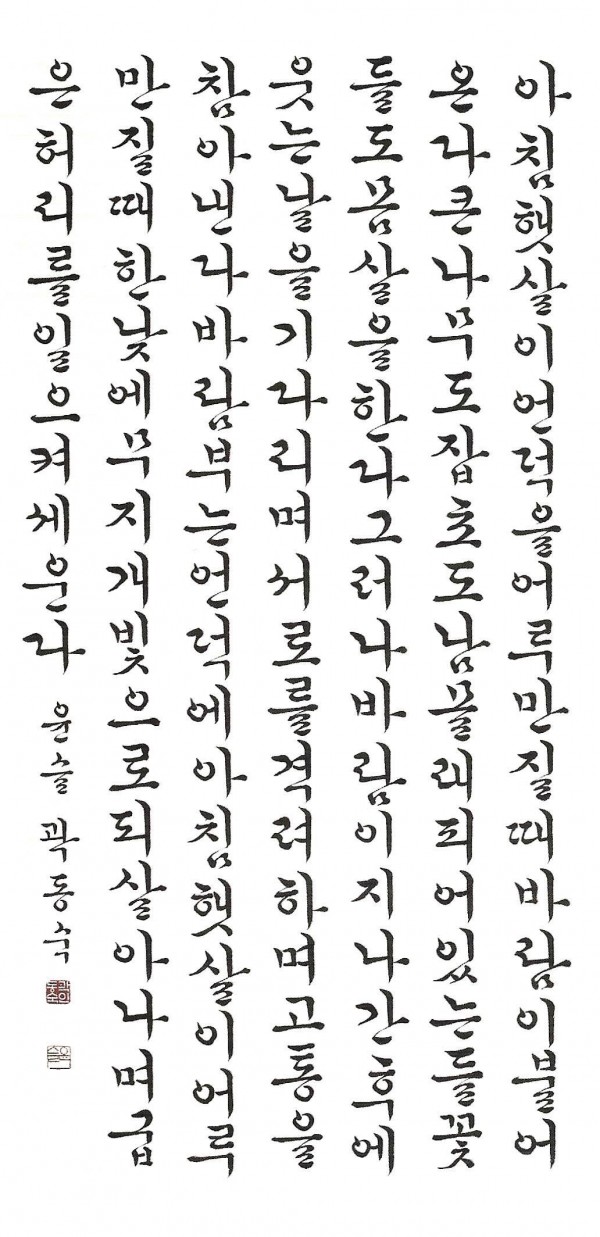 아침햇살이언덕을어루만질때바람이불어
온다큰나무도잡초도남몰래피어있는들꽃
들도몸살을한다그러나바람이지나간후에
웃는날을기다리며서로를격려하며고통을
참아낸다바람부는언덕에아침햇살이어루
만질때한낮에무지개빛으로되살아나며굽
은허리를일으켜세운다
윤슬 곽동숙